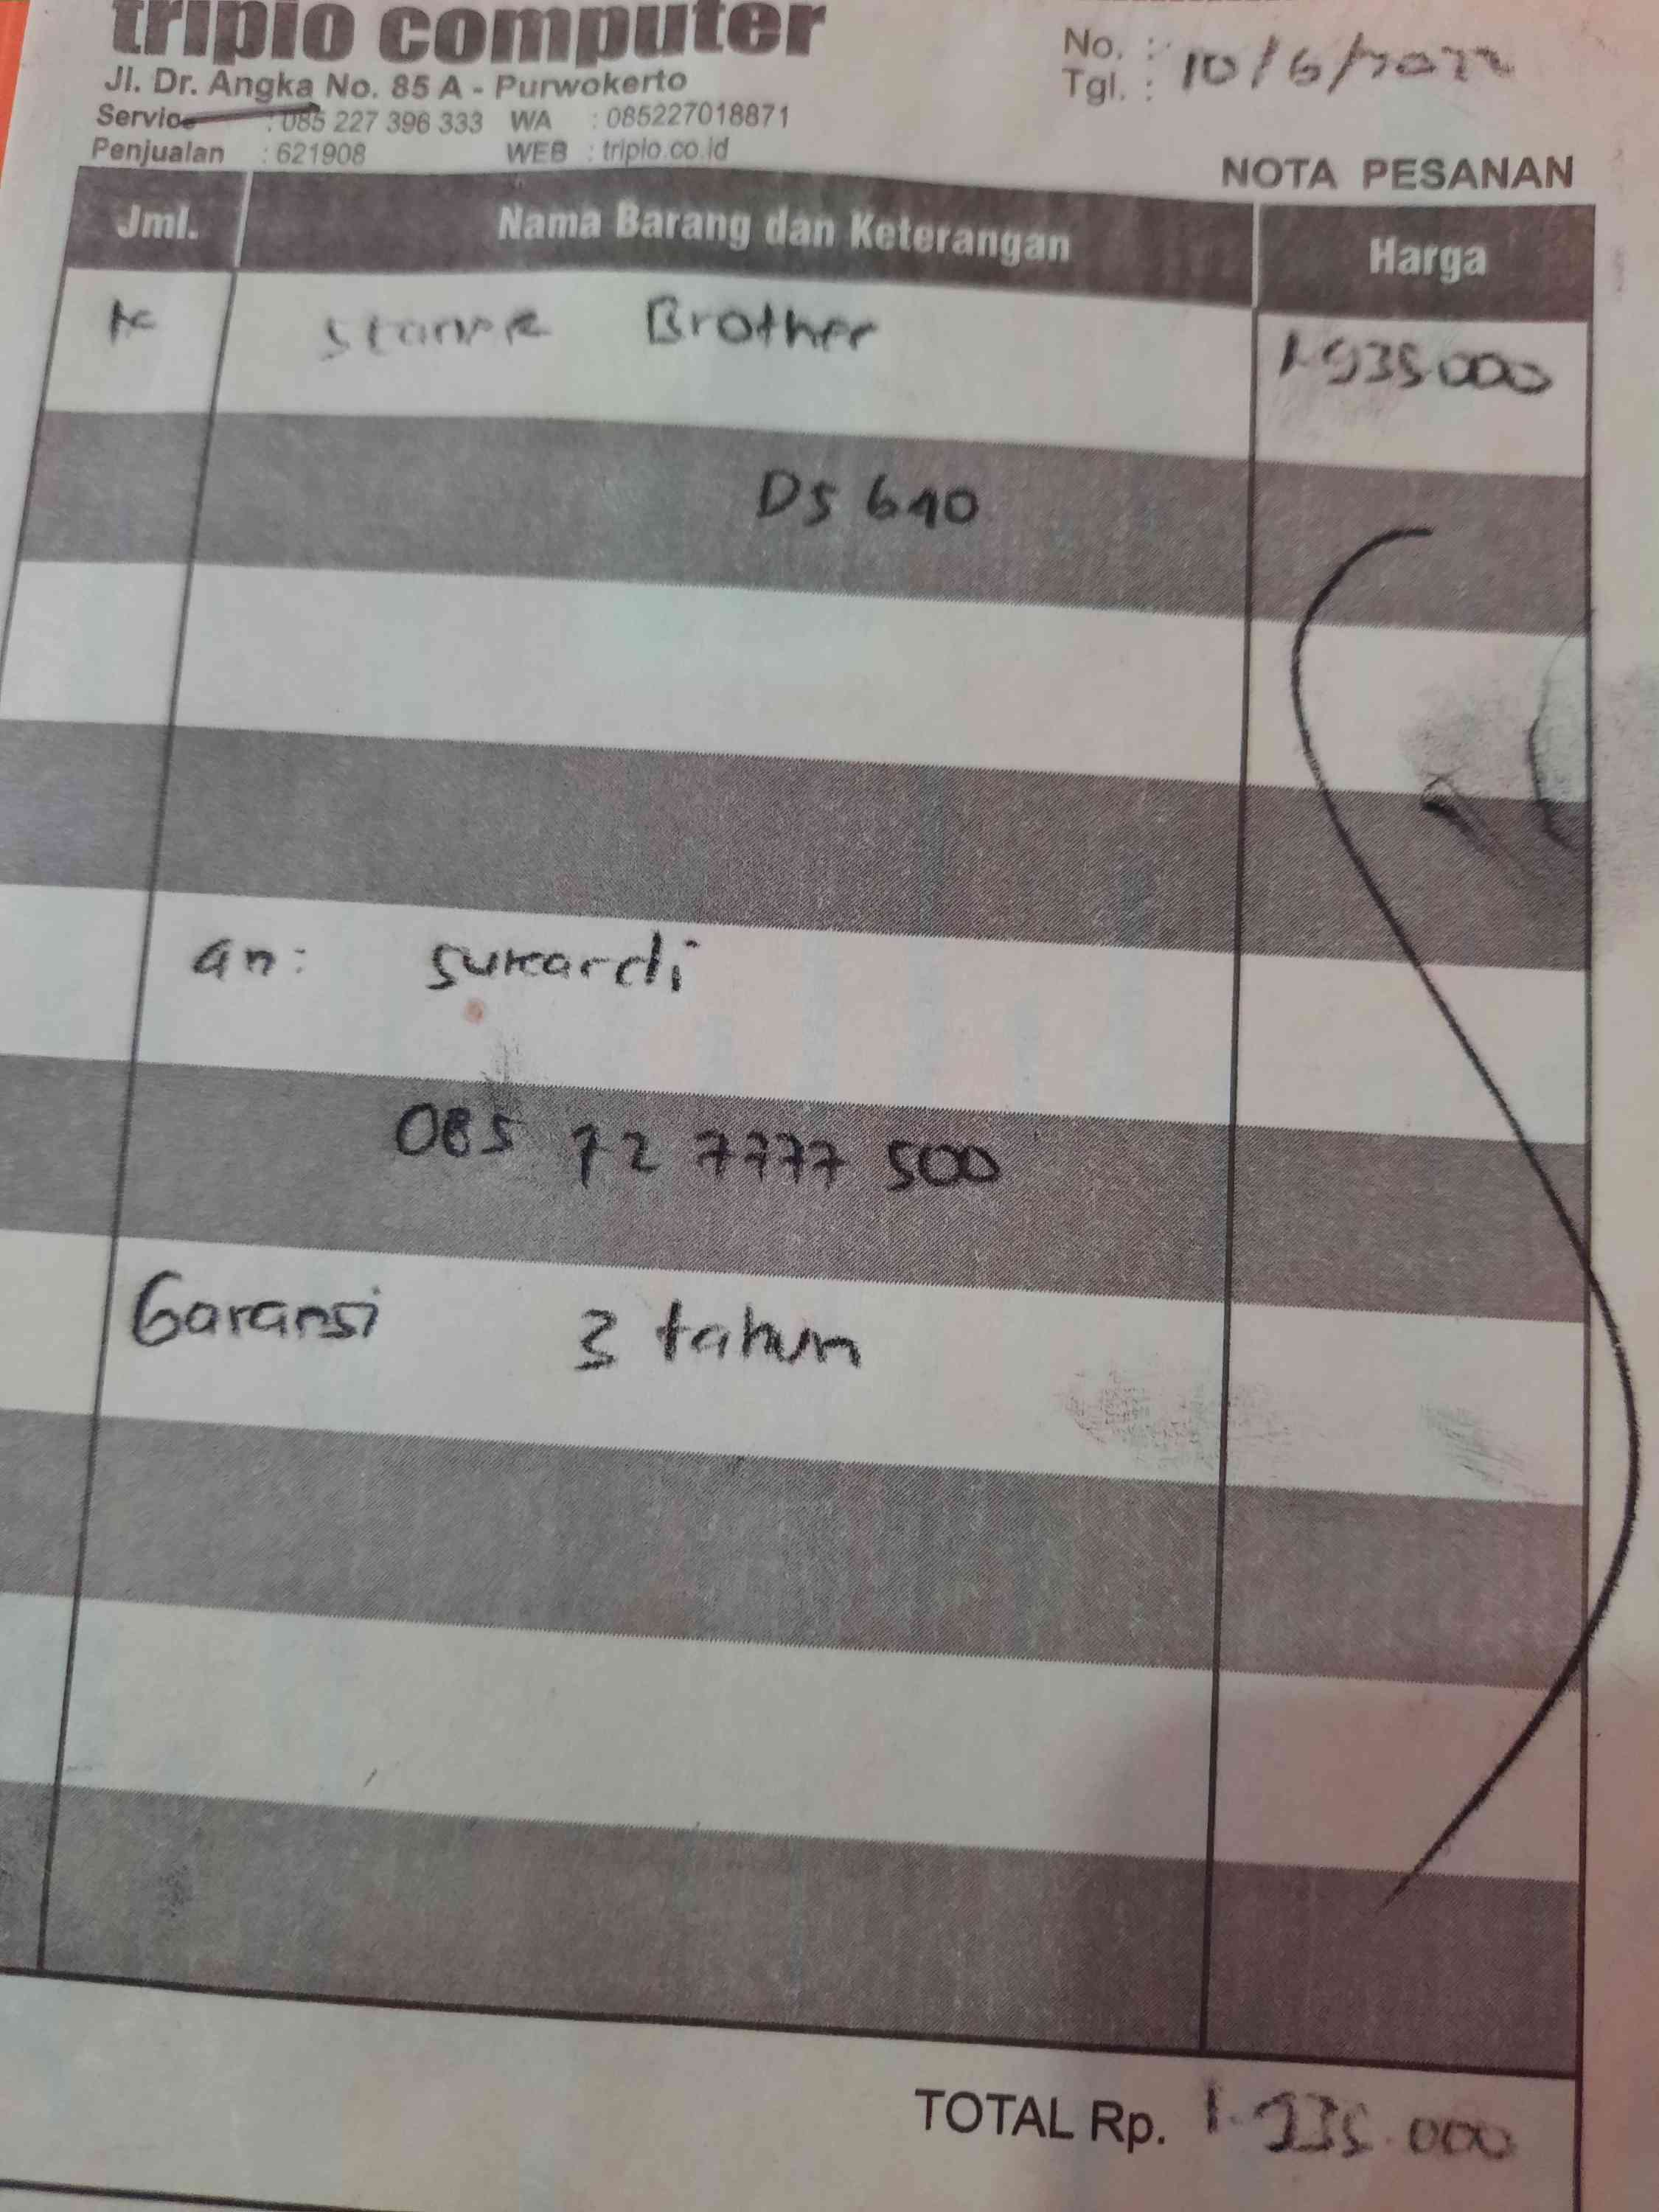 triplo computer
Jl. Dr. Angka No. 85 A - Purwokerto
Service : 085 227 396 333 WA : 085227018871
Penjualan : 621908 WEB : triplo.co.id
No. :
Tgl. : 10/6/2022
NOTA PESANAN
Jml. Nama Barang dan Keterangan Harga
Brother 1.935.000
DS 640
an: sukardi
085 72 7777 500
Garansi 3 tahun
TOTAL Rp. 1.935.000